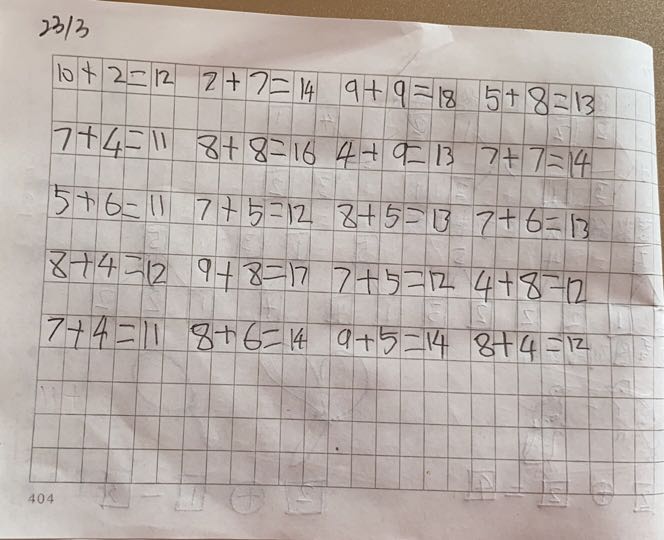 23/3
10+2=12 7+7=14 9+9=18 5+8=13
7+4=11 8+8=16 4+9=13 7+7=14
5+6=11 7+5=12 8+5=13 7+6=13
8+4=12 9+8=17 7+5=12 4+8=12
7+4=11 8+6=14 9+5=14 8+4=12
404